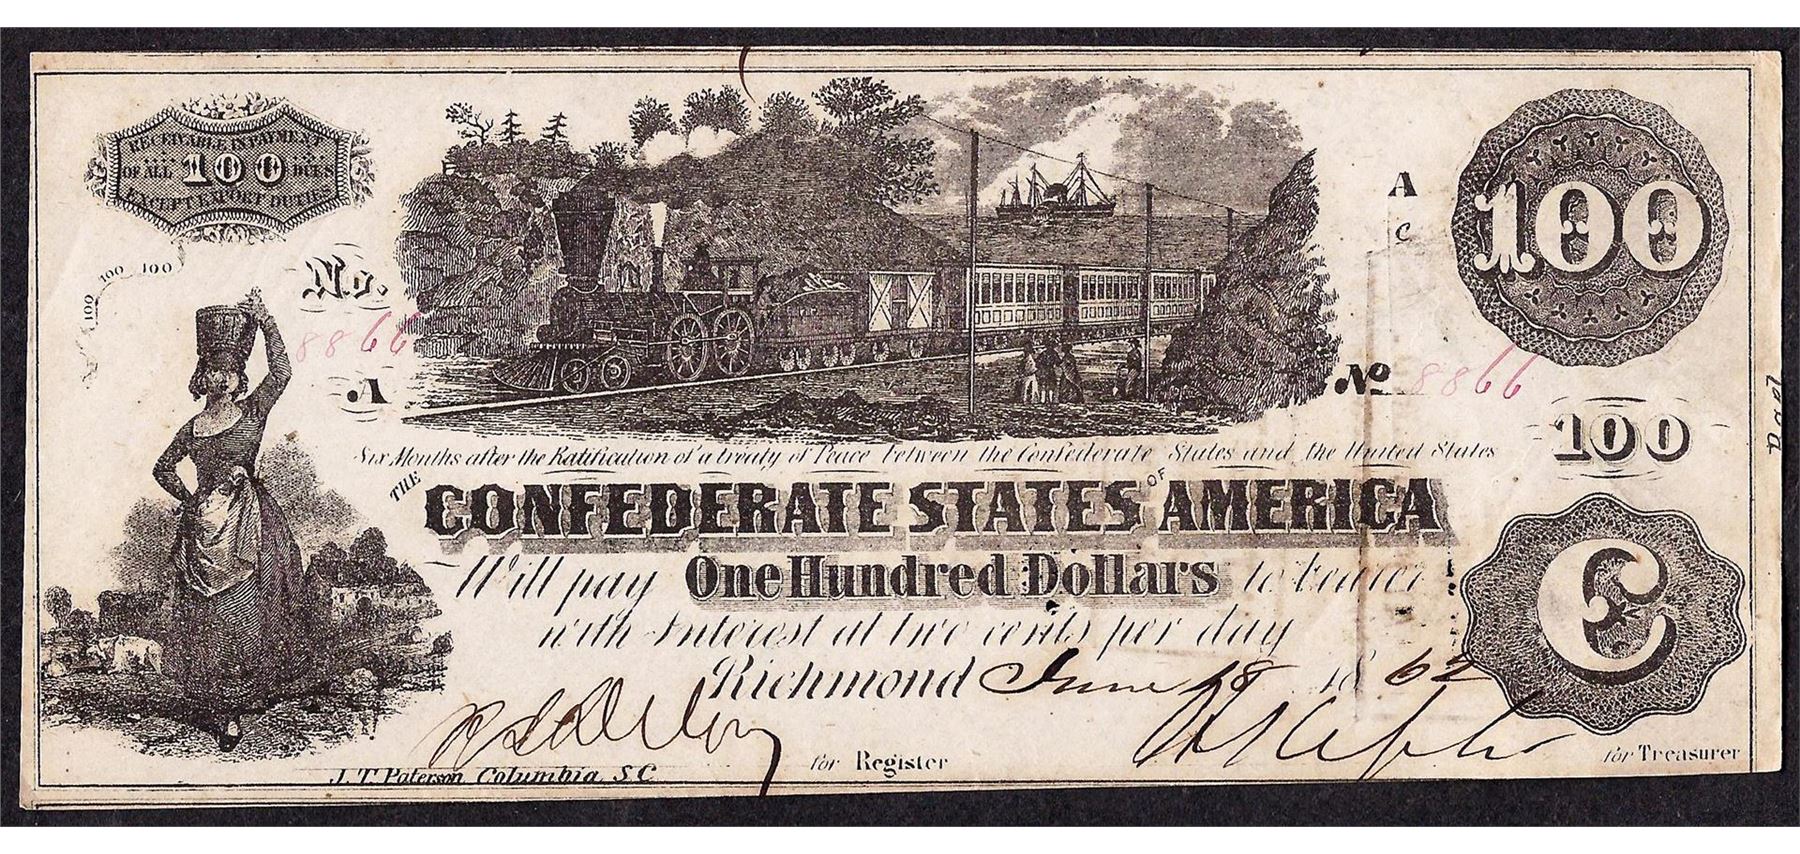 RECEIVABLE IN PAYMENT
OF ALL 100 DUES
EXCEPT EXPORT DUTIES
100 100 100
No.
8866
A
A
c
100
No 8866
100
Six Months after the Ratification of a treaty of Peace between the Confederate States and the United States
THE CONFEDERATE STATES OF AMERICA
Will pay One Hundred Dollars to bearer
with Interest at two cents per day
Richmond June 18 1862
C
for Register
for Treasurer
J. T. Paterson Columbia, S.C